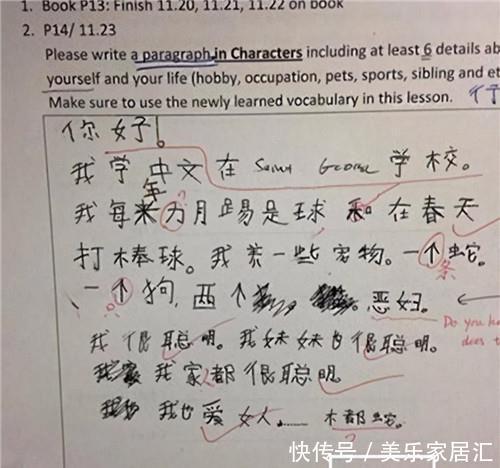 1. Book P13: Finish 11.20, 11.21, 11.22 on book
2. P14/ 11.23
Please write a paragraph in Characters including at least 6 details ab
yourself and your life (hobby, occupation, pets, sports, sibling and et
Make sure to use the newly learned vocabulary in this lesson.
你好!
我学中文在 Saint George 学校。
年
我每为月踢是球和在春天
打棒球。我养一些宠物。一个蛇。
条
一个狗,两个 恶妇。
Do you
does t
我很聪明。我妹妹也很聪明。
我家都很聪明。
我也爱女人…… 木都蛇。
快传号/美乐家居汇